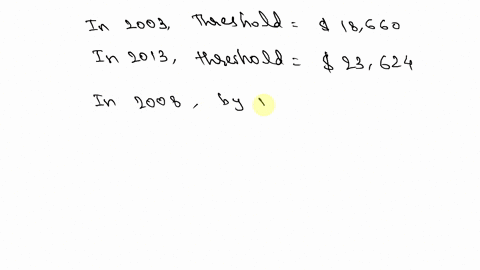 In 2003, Threshold = $ 18,660
In 2013, threshold = $ 23,624
In 2008, by